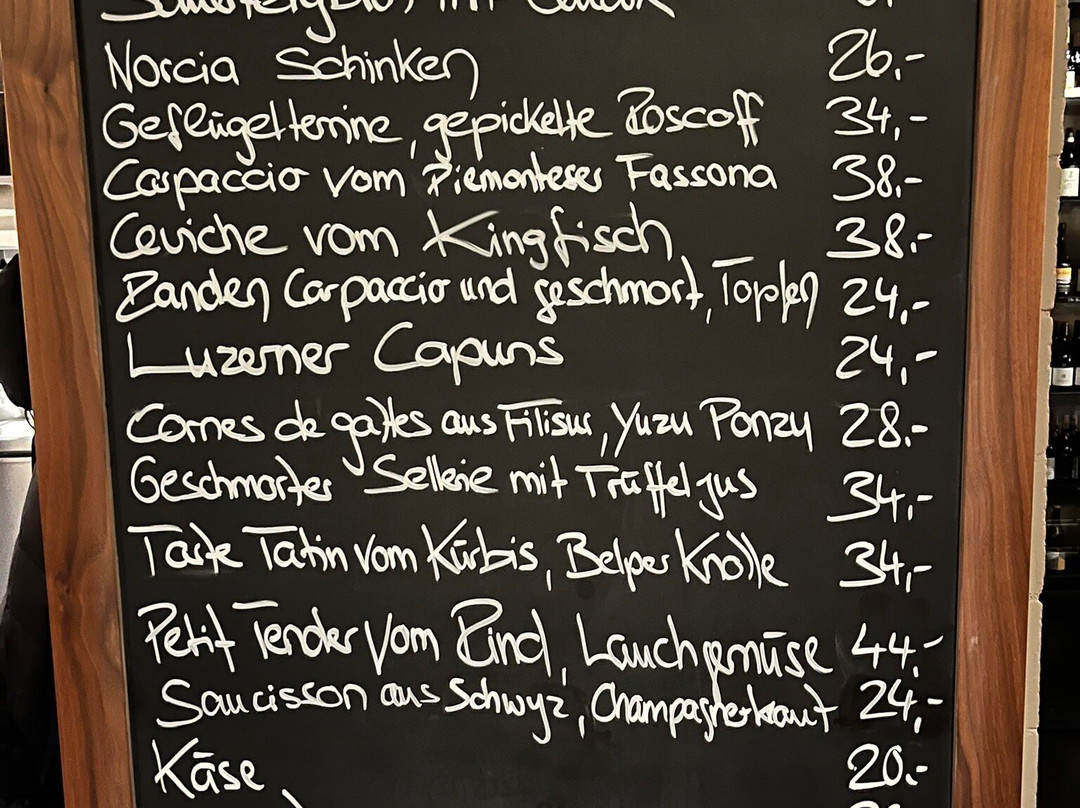 Norcia Schinken 26.-
Geflügelterrine, gepickelte Roscoff 34.-
Carpaccio vom Piemonteser Fassona 38.-
Ceviche vom Kingfisch 38.-
Zander Carpaccio und geschmort, Topfen 24.-
Luzerner Capuns 24.-
Cornes de gattes aus Filisur, Yuzu Ponzu 28.-
Geschmorter Sellerie mit Trüffeljus 34.-
Tarte Tatin vom Kürbis, Belper Knolle 34.-
Petit Tender vom Rind, Lauchgemüse 44.-
Saucisson aus Schwyz, Champagnerkraut 24.-
Käse 20.-